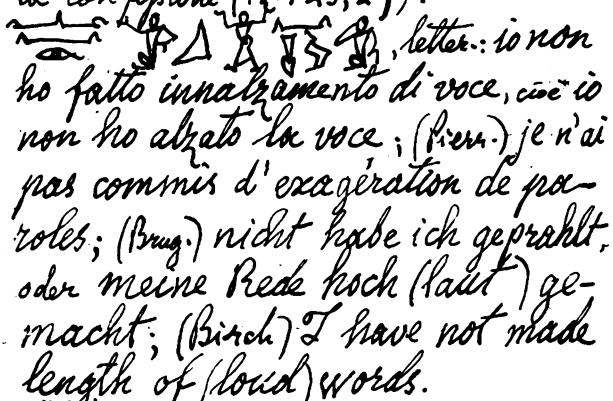 letter.: io non
ho fatto innalzamento di voce, cioè io
non ho alzato la voce; (Pierr.) je n'ai
pas commis d'exagération de pa-
roles; (Brug.) nicht habe ich geprahlt,
oder meine Rede hoch (laut) ge-
macht; (Birch) I have not made
length of (loud) words.